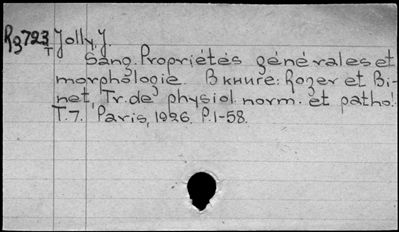 Rg723 Jolly, J.
T
Sang. Propriétés générales et
morphologie. В книге: Roger et Bi-
net, Tr. de physiol. norm. et pathol.
T. 7. Paris, 1926. P. 1-58.